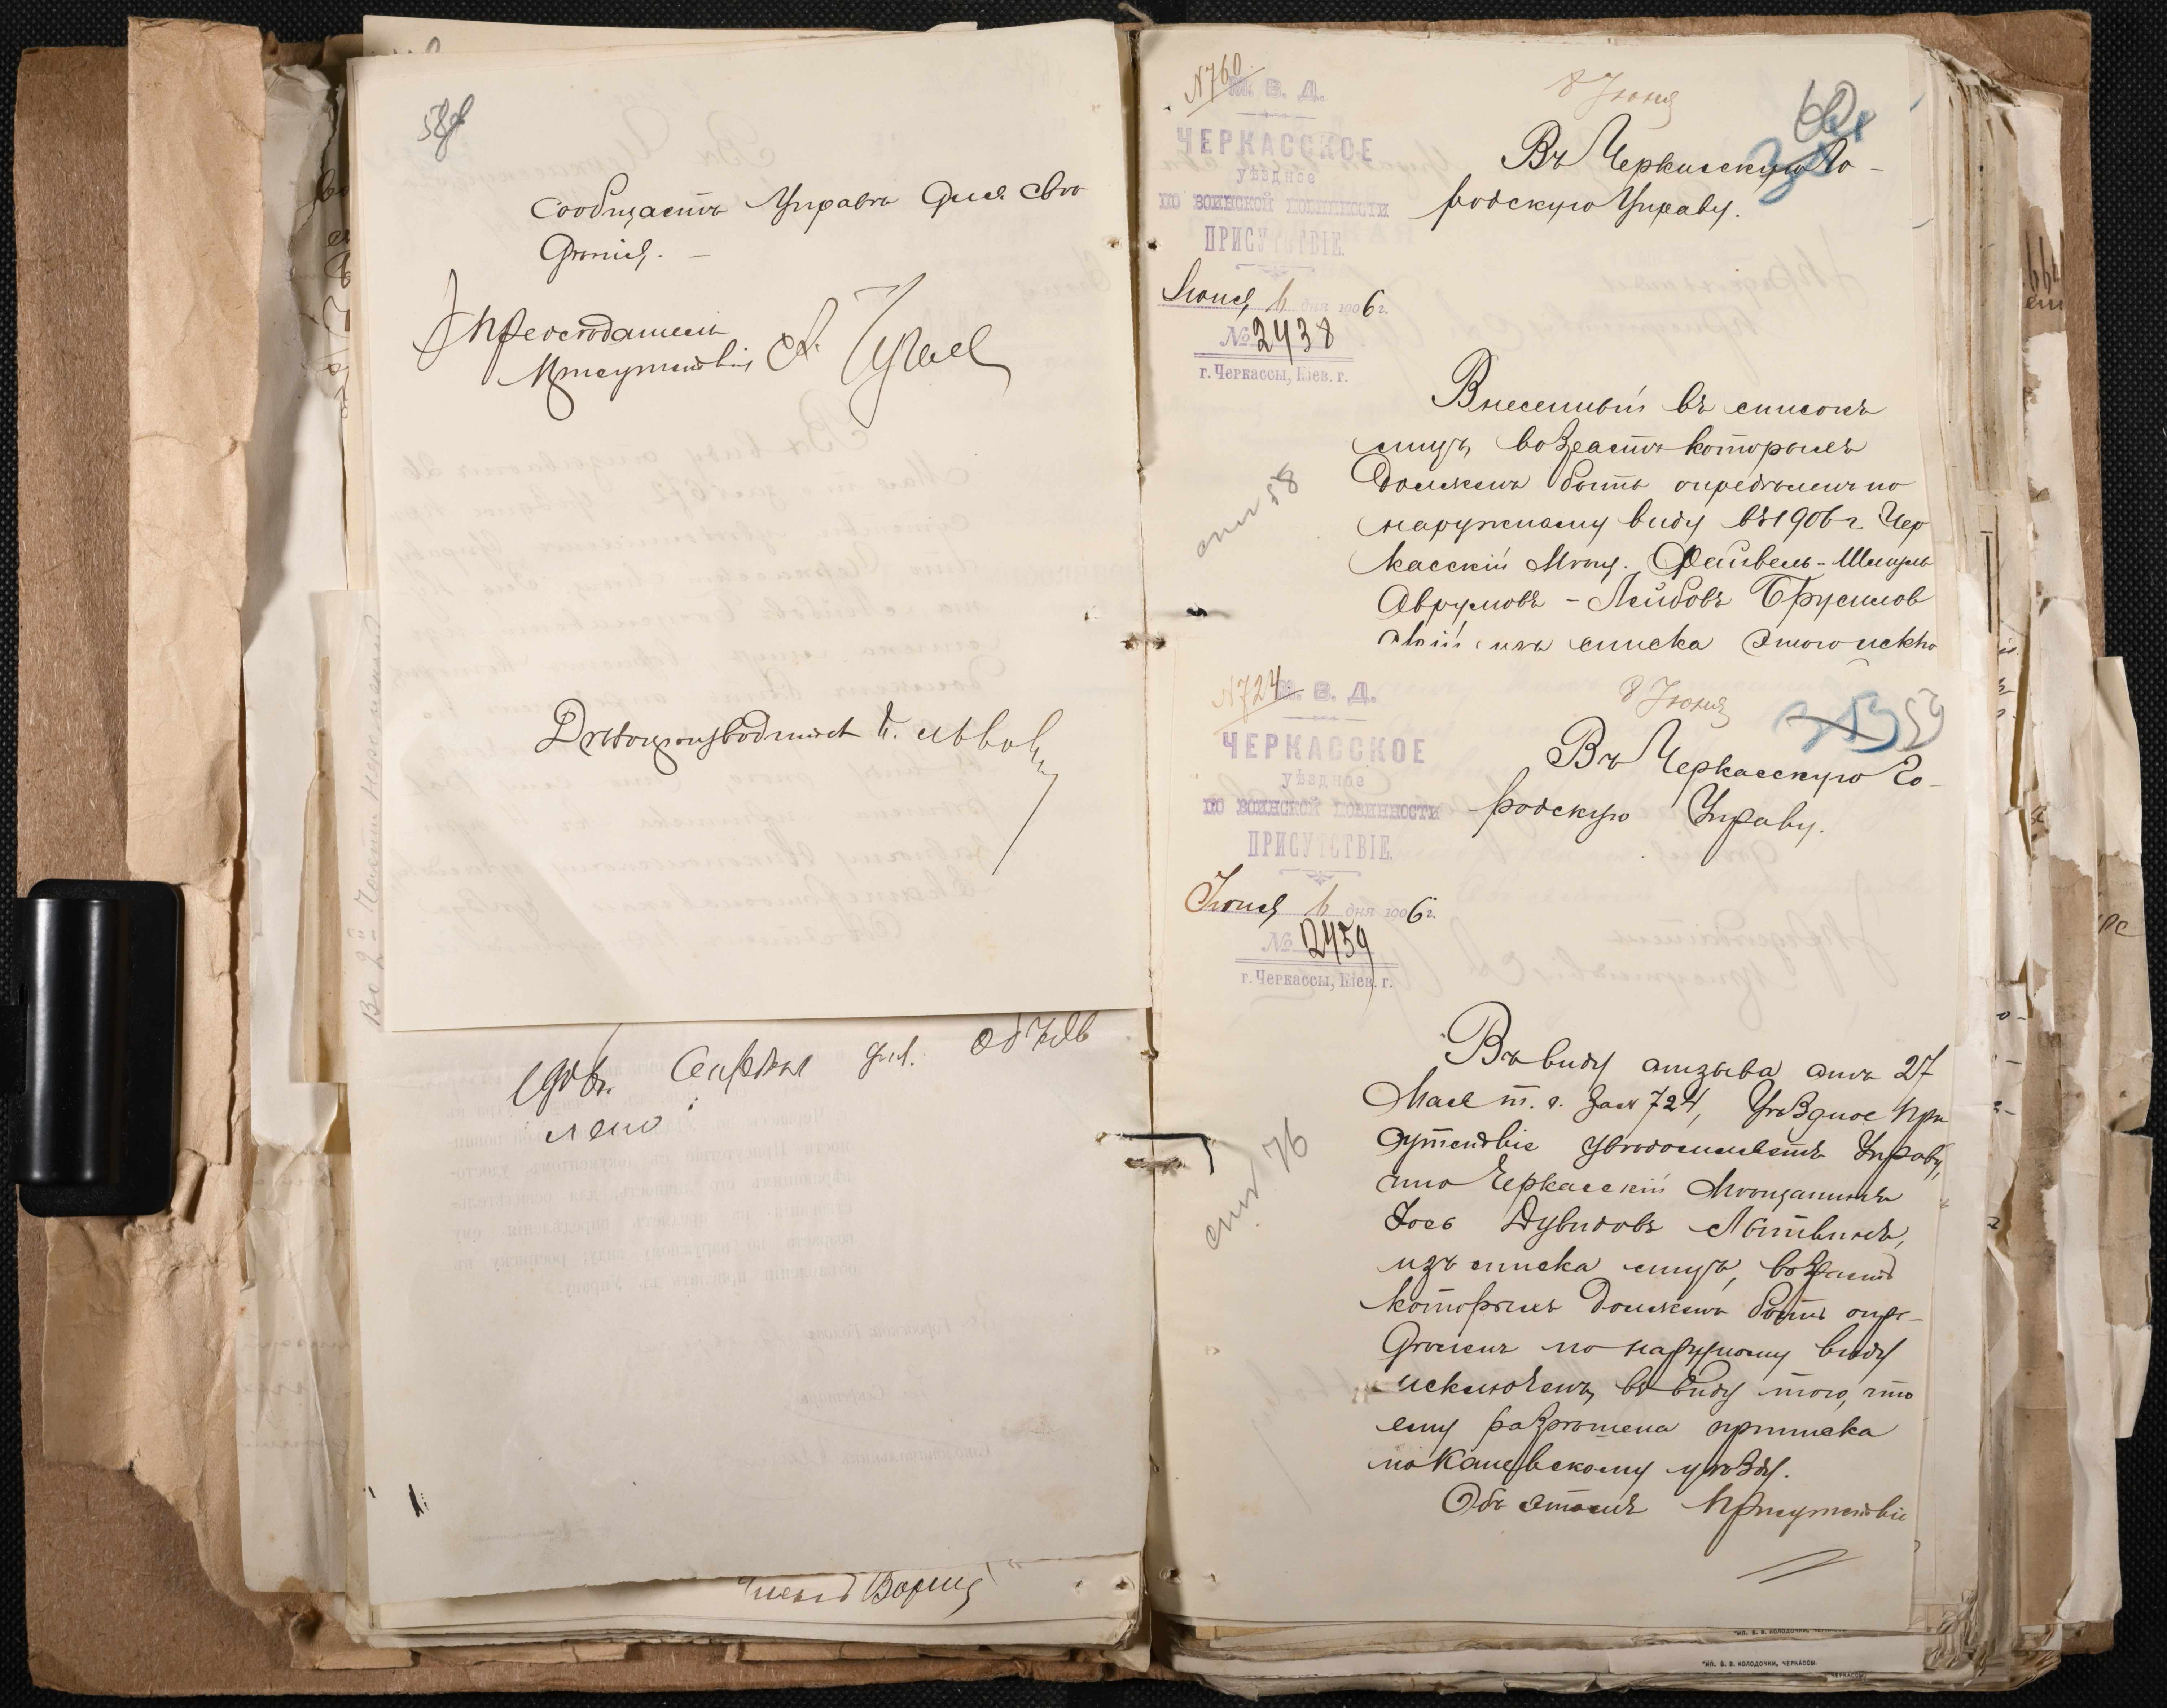 58об
Сообщаетъ Управѣ для свѣ
дѣнія. —
Предсѣдатель
Присутствія
Дѣлопроизводитель
1906 г. Сентября дня. Объяв
лено
N 760
М. В. Д.
ЧЕРКАССКОЕ
уѣздное
ПО ВОИНСКОЙ ПОВИННОСТИ
ПРИСУТСТВІЕ.
Іюня 6 дня 1906 г.
№ 2438
г. Черкассы, Кіев. г.
8 Іюня
60
Въ Черкасскую Го-
родскую Управу.
Внесенный въ списокъ
лицъ, возрастъ которыхъ
долженъ быть опредѣленъ по
наружному виду въ 1906 г. Чер
касскій Мѣщ. Файвель-Шмуль
Аврумовъ-Лейбовъ Брусилов
скій изъ списка этого исклю
N 724
М. В. Д.
ЧЕРКАССКОЕ
уѣздное
ПО ВОИНСКОЙ ПОВИННОСТИ
ПРИСУТСТВІЕ.
Іюня 6 дня 1906 г.
№ 2459
г. Черкассы, Кіев. г.
8 Іюня
59
Въ Черкасскую Го-
родскую Управу.
Въ виду отзыва отъ 27
Мая т. г. за № 724, Уѣздное При
сутствіе увѣдомляетъ Управу,
что Черкасскій Мѣщанинъ
Іось Дувидовъ Литвинъ,
изъ списка лицъ, возрастъ
которыхъ долженъ быть опре-
дѣленъ по наружному виду
исключенъ, въ виду того, что
ему разрѣшена приписка
по Каневскому уѣзду.
Объ этомъ Присутствіе
ТИП. В. В. КОЛОДОЧКИ, ЧЕРКАССЫ.